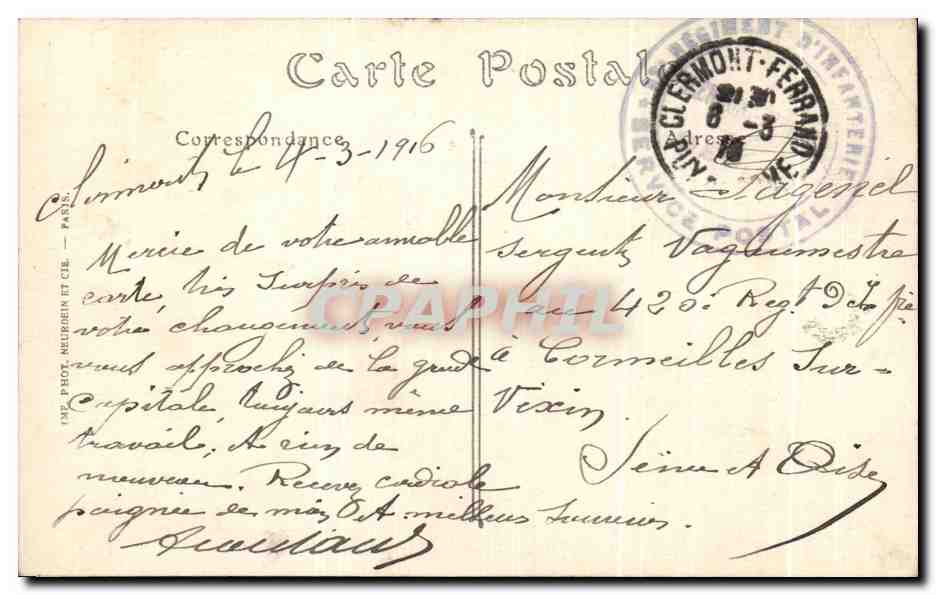 Carte Postale
Correspondance
Adresse
RÉGIMENT D'INFANTERIE
SERVICE POSTAL
CLERMONT-FERRAND
PUY-DE-DOME
6 -3
Clermont le 4-3-1916
Mercie de votre aimable
carte, très surpris de
votre changement, vous
vous approchez de la grande
Capitale, toujours même
travail, A rien de
nouveau. Recevez cordiale
poignée de main & A meilleurs souvenirs.
Monsieur Fagenel
sergent Vaguemestre
au 420e Regt d'Inf ie
à Cormeilles Sur-
Vixin
Seine A Oise
IMP. PHOT. NEURDEIN ET CIE. — PARIS.
CPAPHIL